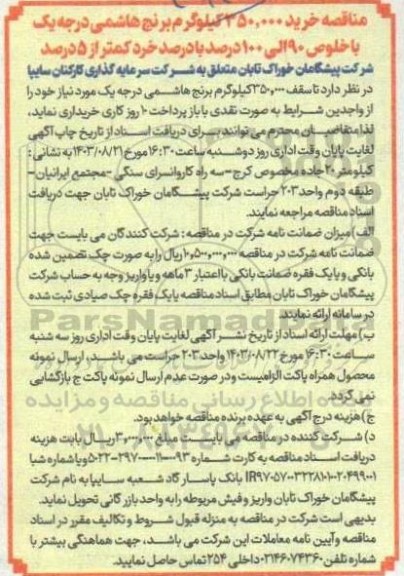 مناقصه خرید ۳۵۰,۰۰۰ کیلوگرم برنج هاشمی درجه یک
با خلوص ۹۰ الی ۱۰۰ درصد با درصد خرد کمتر از ۵ درصد
شرکت پیشگامان خوراک تابان متعلق به شرکت سرمایه گذاری کارکنان سایپا
در نظر دارد تا سقف ۳۵۰,۰۰۰ کیلوگرم برنج هاشمی درجه یک مورد نیاز خود را
از واجدین شرایط به صورت نقدی با باز پرداخت ۱۰ روز کاری خریداری نماید،
لذا متقاضیان محترم می توانند برای دریافت اسناد از تاریخ چاپ آگهی
لغایت پایان وقت اداری روز دوشنبه ساعت ۱۶:۳۰ مورخ ۱۴۰۳/۰۸/۲۱ به نشانی:
کیلومتر ۲۰ جاده مخصوص کرج-سه راه کاروانسرای سنگی-مجتمع ایرانیان-
طبقه دوم واحد ۲۰۳ حراست شرکت پیشگامان خوراک تابان جهت دریافت
اسناد مناقصه مراجعه نمایند.
الف) میزان ضمانت نامه شرکت در مناقصه: شرکت کنندگان می بایست جهت
ضمانت نامه شرکت در مناقصه ۱۰,۵۰۰,۰۰۰,۰۰۰ ریال را به صورت چک تضمین شده
بانکی و یا یک فقره ضمانت بانکی با اعتبار ۳ ماهه و یا واریز وجه به حساب شرکت
پیشگامان خوراک تابان مطابق اسناد مناقصه یا یک فقره چک صیادی ثبت شده
در سامانه ارائه نمایند.
ب) مهلت ارائه اسناد از تاریخ نشر آگهی لغایت پایان وقت اداری روز سه شنبه
ساعت ۱۶:۳۰ مورخ ۱۴۰۳/۰۸/۲۲ واحد ۲۰۳ حراست می باشد، ارسال نمونه
محصول همراه پاکت الزامیست و در صورت عدم ارسال نمونه پاکت ج بازگشایی
نمی گردد.
ج) هزینه درج آگهی به عهده برنده مناقصه خواهد بود.
د) شرکت کننده در مناقصه می بایست مبلغ ۳,۰۰۰,۰۰۰ ریال بابت هزینه
دریافت اسناد مناقصه به کارت شماره و یا شماره شبا
بانک پاسارگاد شعبه سایپا به نام شرکت
پیشگامان خوراک تابان واریز و فیش مربوطه را به واحد بازرگانی تحویل نماید.
بدیهی است شرکت در مناقصه به منزله قبول شروط و تکالیف مقرر در اسناد
مناقصه و آیین نامه معاملات این شرکت می باشد، جهت هماهنگی بیشتر با
شماره تلفن ۰۲۱۴۶۰۷۴۳۶۰ داخلی ۲۵۴ تماس حاصل نمایید.
ParsNamadData